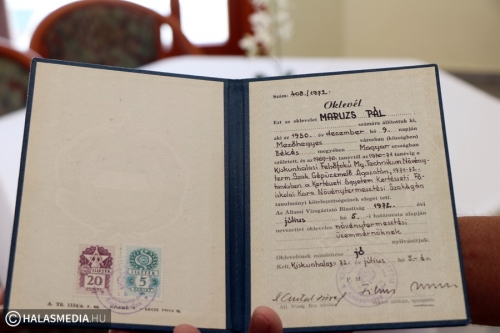 Szám: 408/1972.
Oklevél
Ezt az oklevelet MARUZS PÁL számára állítottuk ki,
aki az 1950. év december hó 9. napján
Mezőhegyes városban (községben)
Békés megyében Magyar országban
született, és az 1969-70. tanévtől az 1970-71 tanévig a
Kiskunhalasi Felsőfokú Mg. Technikum Növény-
term. Szak Gépüzemelő Ágazatán, 1971-72.
tanévben a Kertészeti Egyetem Kertészeti Fő-
iskolai Kara Növénytermesztési Szakágán
tanulmányi kötelezettségeinek eleget tett.
Az Állami Vizsgáztató Bizottság 1972. év
július hó 5.-i határozata alapján
nevezettet okleveles növénytermesztési
üzemmérnöknek
nyilvánítjuk.
Oklevelének minősítése jó
Kelt, Kiskunhalas, 72. év július hó 5.-én
P. H.
20
FILLÉR
5
© HALASMEDIA.HU